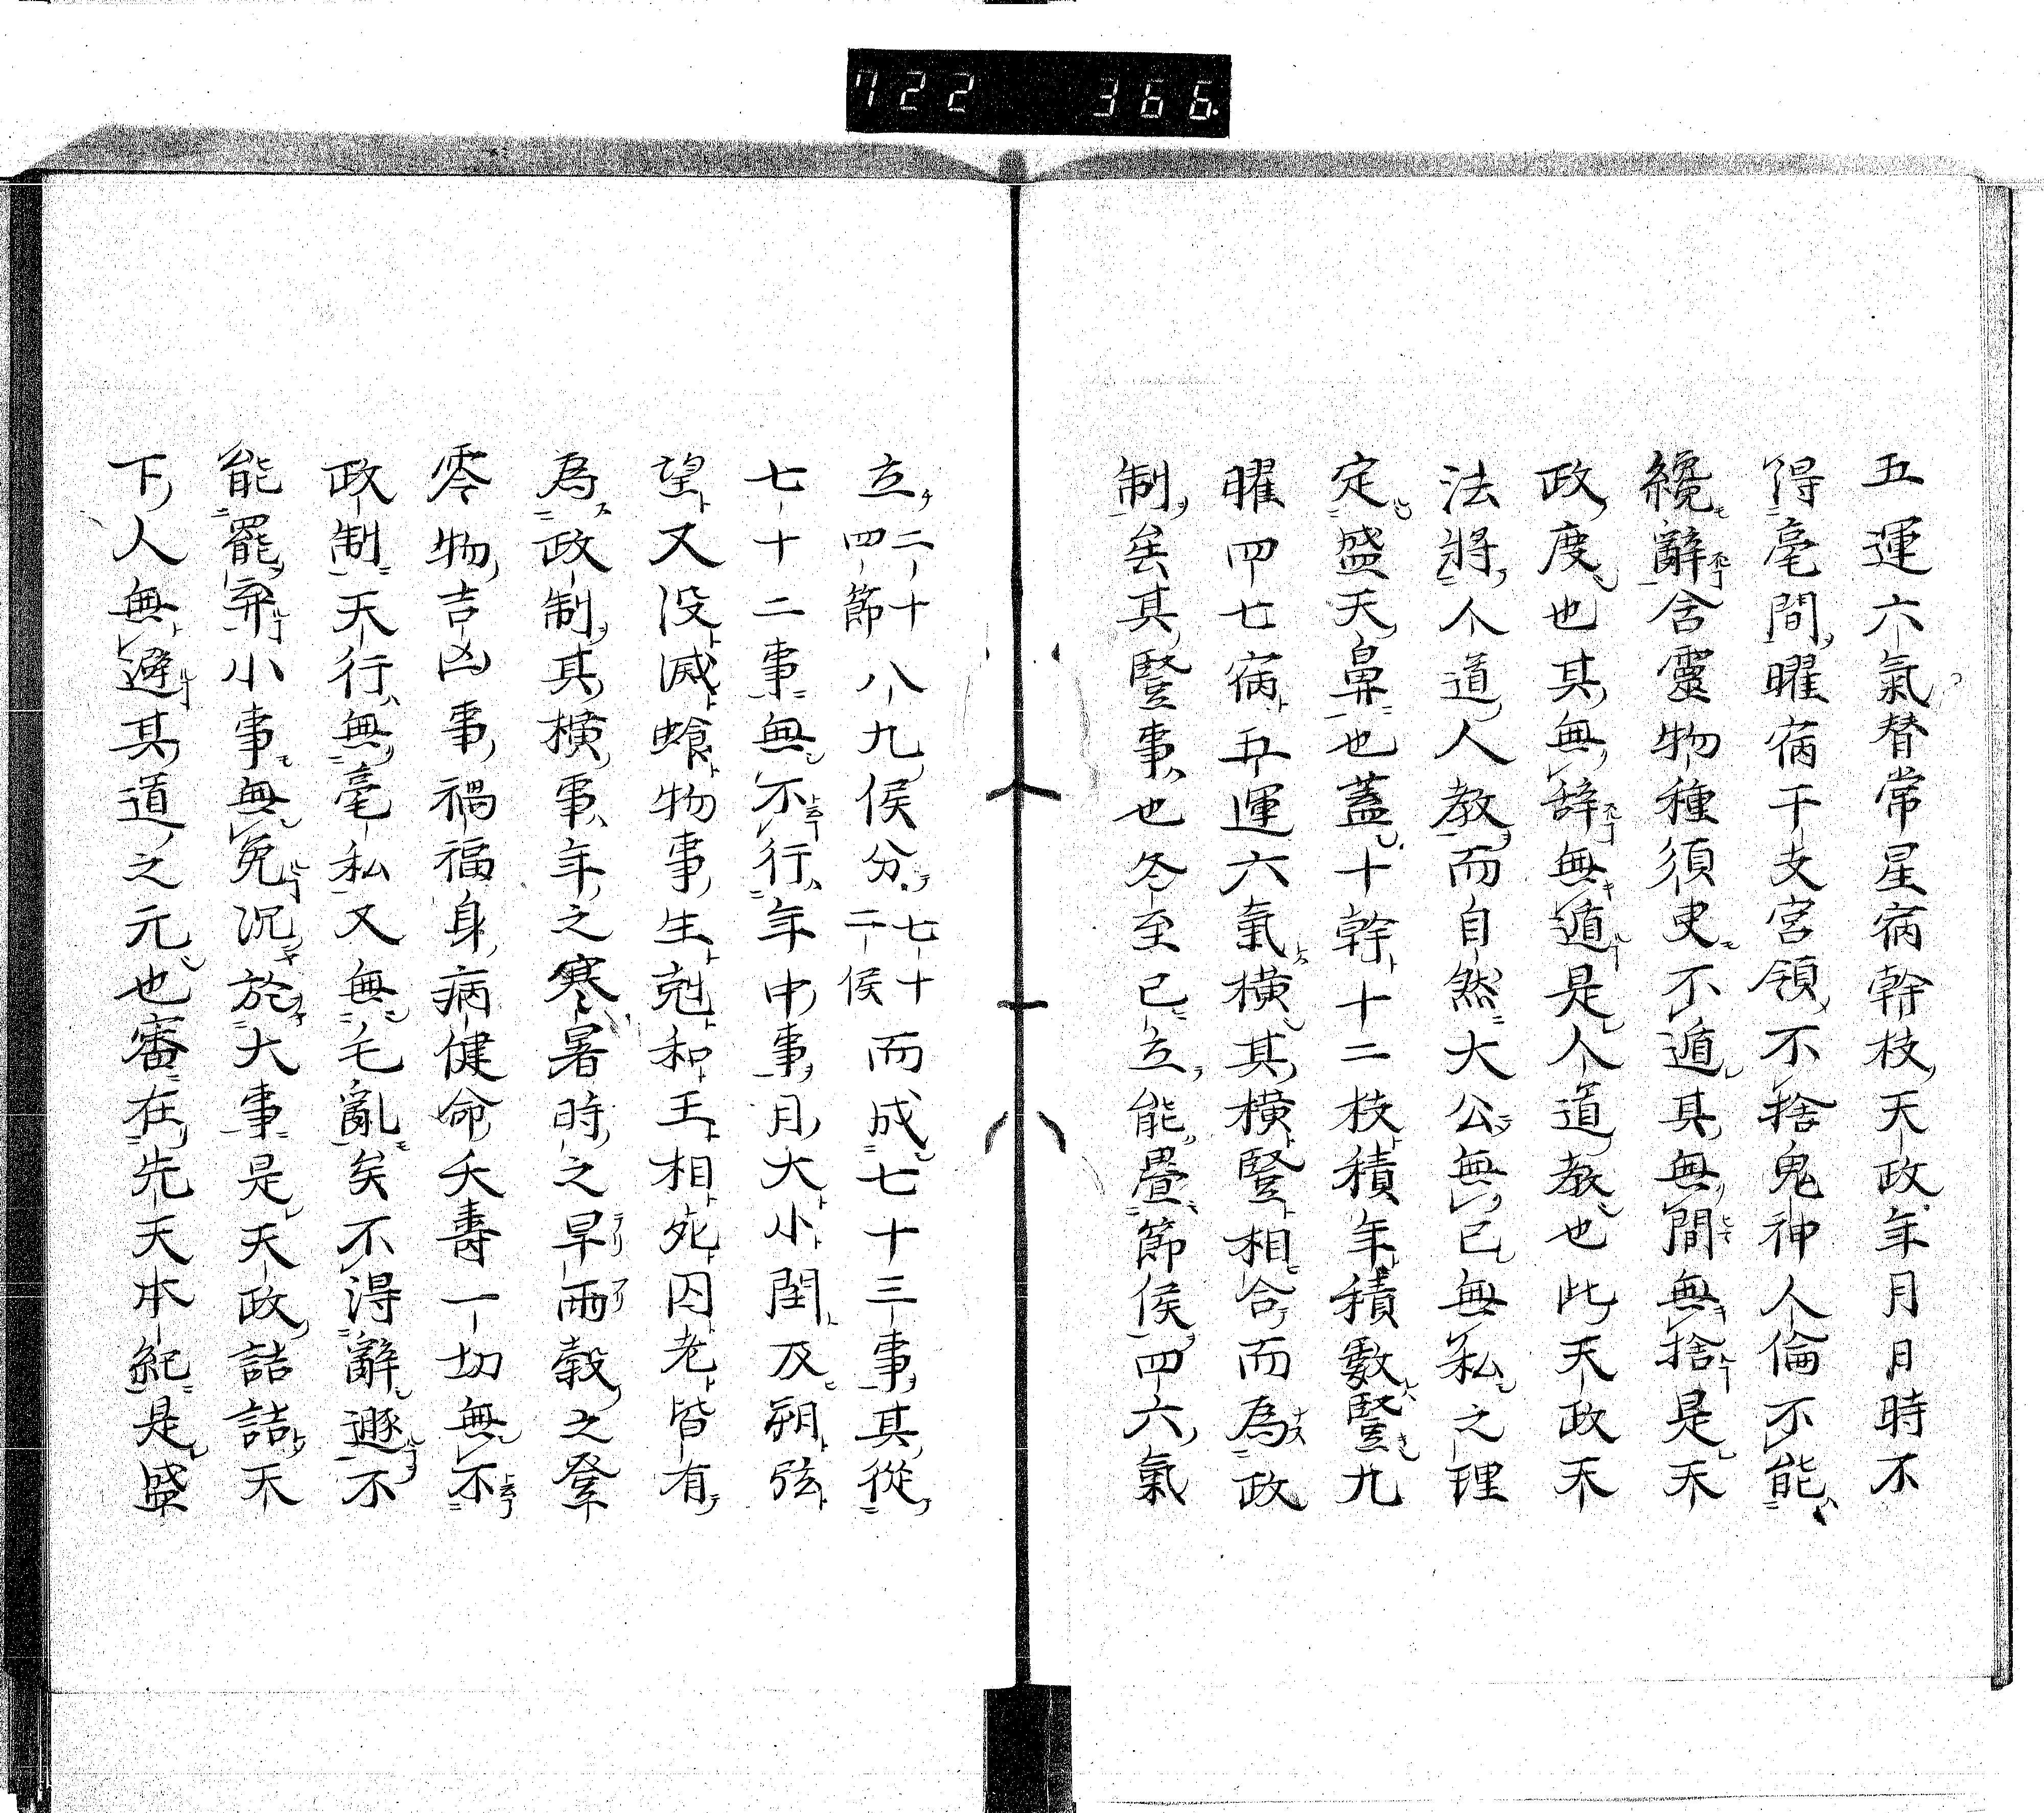 722 366
五運六氣替常星宿幹枝天政年月日時不
得毫間曜宿干支宮領不捨鬼神人倫不能
纔辭含靈物種須臾不遁其無間無捨是天
政度也其無辞無遁是人道教也此天政天
法將人道人教而自然大公無己無私之理
定盛天鼻也蓋十幹十二枝積年積數豎九
曜四七宿五運六氣橫其橫豎相合而為政
制矣其豎事也冬至已立能疊節候四六氣
立二十四節八九候分七十二候而成七十三事其從
七十二事無不行年中事月大小閏及朔弦
望又没滅蝕物事生剋和王相死囚老皆有
為政制其橫事年之寒暑時之旱雨穀之登
零物吉凶事禍福身病健命夭壽一切無不
政制天行無毫私又無毛亂矣不得辭遯不
能罷弃小事無免沉於大事是天政詰詰天
下人無避其道之元也審在先天本紀是盛